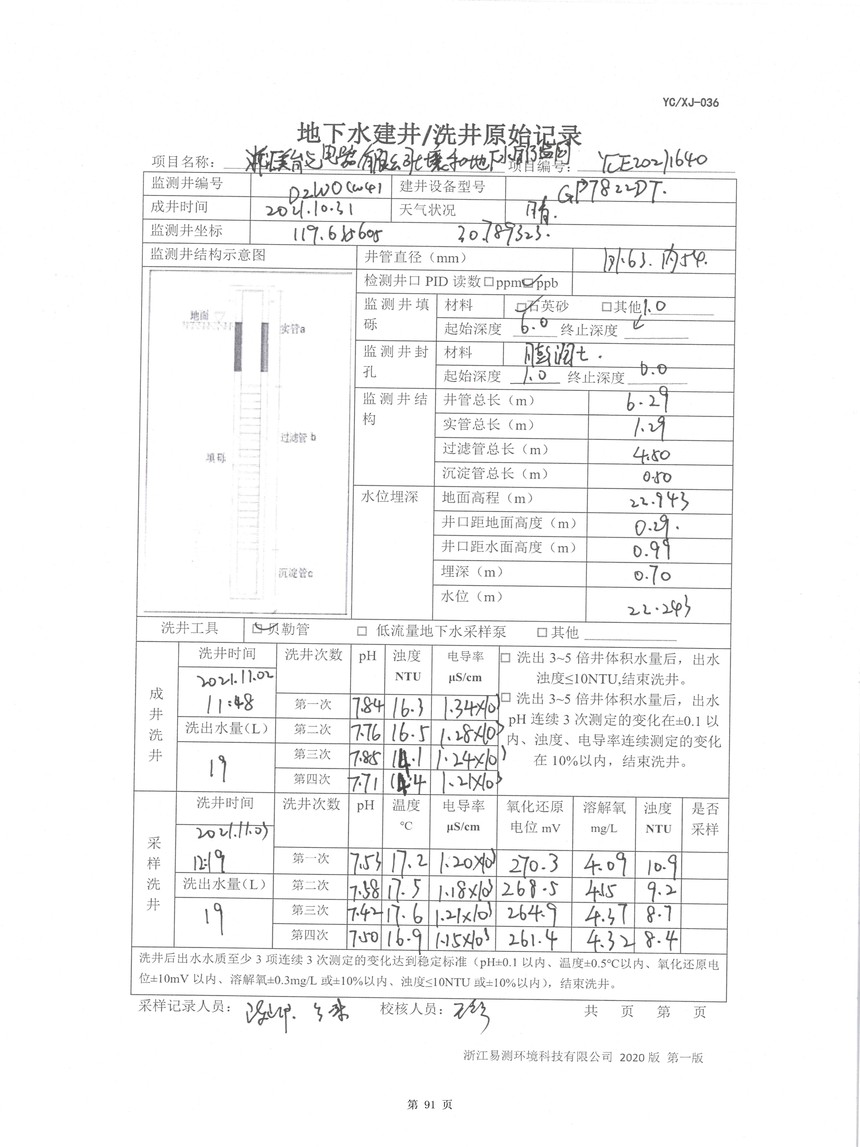 YC/XJ-036
地下水建井/洗井原始记录
项目名称： 电器有限公司土壤和地下水 项目编号： YCE20211640
监测井编号 D2W0 建井设备型号 GP7822DT.
成井时间 2021.10.31 天气状况 晴.
监测井坐标 119.635605 30.789323.
监测井结构示意图 井管直径（mm） 外63. 内54.
检测井口 PID 读数 □ppm ☑ppb
监测井填砾 材料 ☑石英砂 □其他 1.0
起始深度 6.0 终止深度
监测井封孔 材料 膨润土.
起始深度 1.0 终止深度 0.0
监测井结构 井管总长（m） 6.29
实管总长（m） 1.29
过滤管总长（m） 4.50
沉淀管总长（m） 0.50
水位埋深 地面高程（m） 22.943
井口距地面高度（m） 0.29.
井口距水面高度（m） 0.99
埋深（m） 0.70
水位（m） 22.243
地面
实管a
过滤管 b
填砾
沉淀管c
洗井工具 ☑贝勒管 □ 低流量地下水采样泵 □其他
成井洗井 洗井时间 洗井次数 pH 浊度 NTU 电导率 μS/cm
2021.11.02 11:48
第一次 7.84 16.3 1.34×10³
洗出水量(L) 第二次 7.76 16.5 1.28×10³
19 第三次 7.85 14.1 1.24×10³
第四次 7.71 14.4 1.21×10³
□ 洗出 3~5 倍井体积水量后，出水
浊度≤10NTU,结束洗井。
□ 洗出 3~5 倍井体积水量后，出水
pH 连续 3 次测定的变化在±0.1 以
内、浊度、电导率连续测定的变化
在 10%以内，结束洗井。
采样洗井 洗井时间 洗井次数 pH 温度 ℃ 电导率 μS/cm 氧化还原电位 mV 溶解氧 mg/L 浊度 NTU 是否采样
2021.11.03
12:19 第一次 7.53 17.2 1.20×10³ 270.3 4.09 10.9
洗出水量(L) 第二次 7.58 17.5 1.18×10³ 268.5 4.15 9.2
19 第三次 7.42 17.6 1.21×10³ 264.9 4.37 8.7
第四次 7.50 16.9 1.15×10³ 261.4 4.32 8.4
洗井后出水水质至少 3 项连续 3 次测定的变化达到稳定标准（pH±0.1 以内、温度±0.5℃以内、氧化还原电
位±10mV 以内、溶解氧±0.3mg/L 或±10%以内、浊度≤10NTU 或±10%以内），结束洗井。
采样记录人员： 校核人员： 共 页 第 页
浙江易测环境科技有限公司 2020 版 第一版
第 91 页